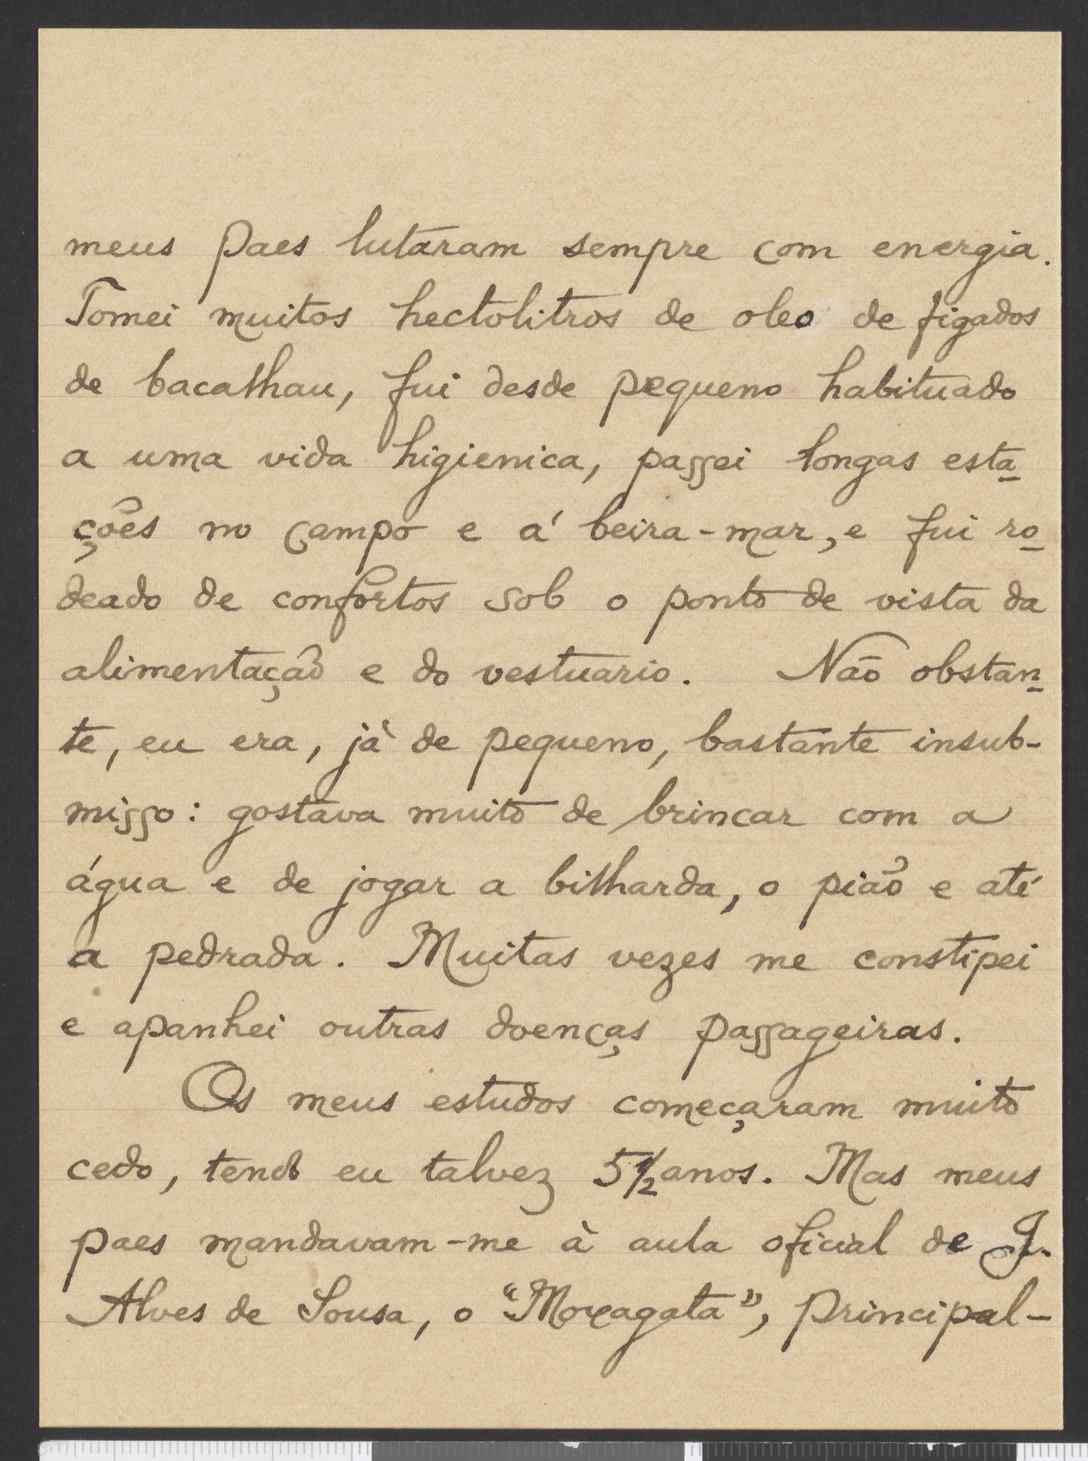 meus Paes lutaram sempre com energia.
Tomei muitos hectolitros de oleo de figados
de bacalhau, fui desde pequeno habituado
a uma vida higienica, passei longas esta-
ções no campo e á beira-mar, e fui ro-
deado de confortos sob o ponto de vista da
alimentação e do vestuario. Não obstan-
te, eu era, já de pequeno, bastante insub-
misso: gostava muito de brincar com a
água e de jogar a bilharda, o pião e até
a pedrada. Muitas vezes me constipei
e apanhei outras doenças passageiras.
Os meus estudos começaram muito
cedo, tendo eu talvez 5 1/2 anos. Mas meus
paes mandavam-me à aula oficial de J.
Alves de Sousa, o "Moragata", principal-